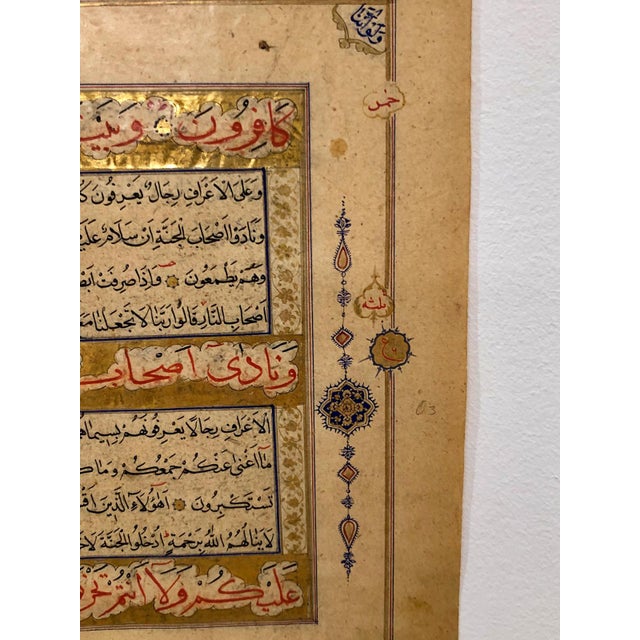 خمر
كَافِرُونَ وَبَيْنَ
وَعَلَى الْاَعْرَافِ رِجَالٌ يَعْرِفُونَ كُ
وَنَادَوْا اَصْحَابَ الْجَنَّةِ اَنْ سَلَامٌ عَلَيْ
وَهُمْ يَطْمَعُونَ وَاِذَا صُرِفَتْ اَبْصَ
اَصْحَابِ النَّارِ قَالُوا رَبَّنَا لَا تَجْعَلْنَا مَ
ثلثه
وَنَادَى اَصْحَابُ
الْاَعْرَافِ رِجَالًا يَعْرِفُونَهُمْ بِسِيمَاهُ
مَا اَغْنَى عَنْكُمْ جَمْعُكُمْ وَمَا كُ
تَسْتَكْبِرُونَ اَهٰؤُلَاءِ الَّذِينَ اَقْ
لَا يَنَالُهُمُ اللهُ بِرَحْمَةٍ اُدْخُلُوا الْجَنَّةَ لَا خَ
عَلَيْكُمْ وَلَا اَنْتُمْ تَحْزَ
63